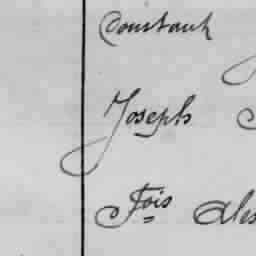 Constant
Joseph
Fois Ales